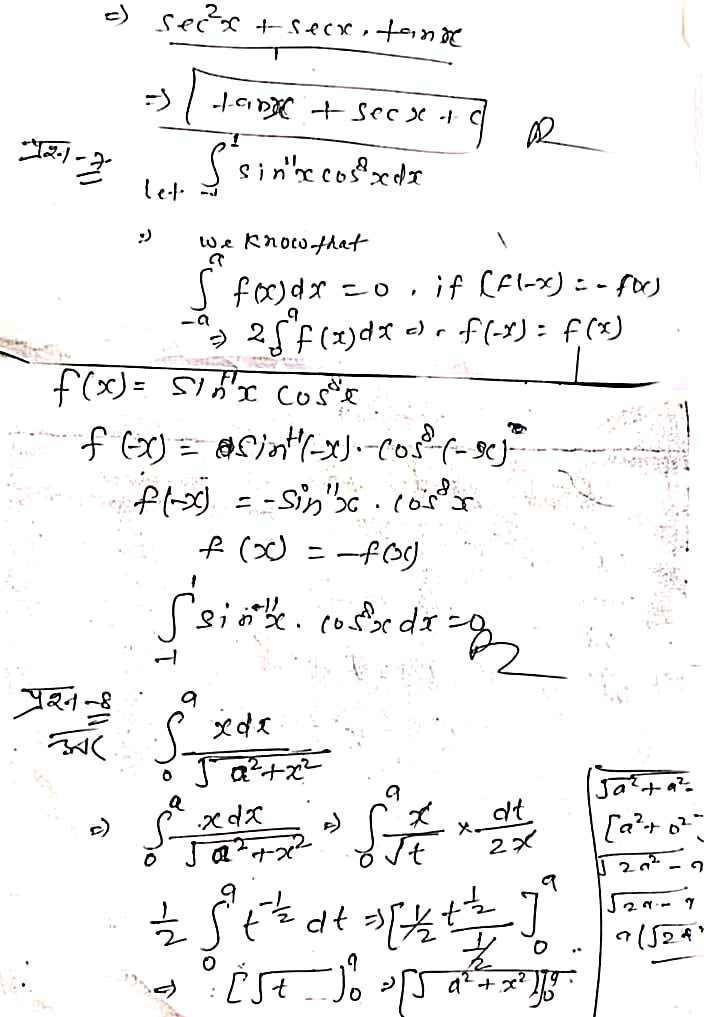 ⇒ sec²x + secx . tanx
⇒ tanx + secx + c
प्रश्न-7
let ∫₋₁¹ sin¹¹x cos⁸x dx
∵) we know that
∫₋ₐᵃ f(x)dx = 0 , if (f(-x) = - f(x)
⇒ 2∫₀ᵃ f(x)dx ⇒ f(-x) = f(x)
f(x) = sin¹¹x cos⁸x
f(-x) = sin¹¹(-x). cos⁸(-x)
f(-x) = -sin¹¹x . cos⁸x
f(x) = -f(x)
∫₋₁¹ sin¹¹x. cos⁸x dx = 0
प्रश्न-8
उत्तर ∫₀ᵃ xdx / √a²+x²
⇒ ∫₀ᵃ xdx / √a²+x² ⇒ ∫₀ᵃ x/√t × dt/2x
½ ∫₀ᵃ t^-½ dt ⇒ [½ t^½ / ½]₀ᵃ
⇒ [√t]₀ᵃ ⇒ [√a²+x²]₀ᵃ
√a²+a²-
[a²+0²-
√2a² - a
√2a - a
a(√2